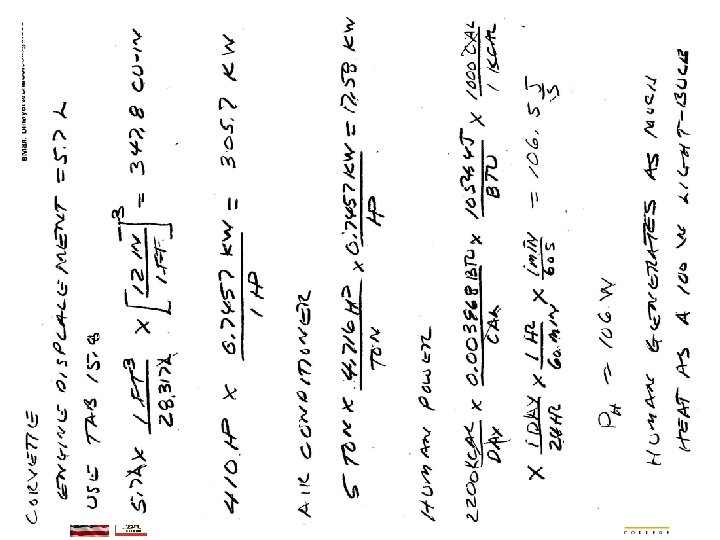 CORVETTE
ENGINE DISPLACEMENT = 5.7 L
USE TAB 15.8
5.7L x 1 FT^3 / 28.317L x [12 IN / 1 FT]^3 = 347.8 CU-IN
410 HP x 0.7457 KW / 1 HP = 305.7 KW
AIR CONDITIONER
5 TON x 4.716 HP / TON x 0.7457 KW / HP = 17.58 KW
HUMAN POWER
2200 KCAL / DAY x 0.003968 BTU / CAL x 1054 J / BTU x 1000 CAL / 1 KCAL
x 1 DAY / 24 HR x 1 HR / 60 MIN x 1 MIN / 60 S = 106.5 J / S
P_H = 106 W
HUMANS GENERATES AS MUCH
HEAT AS A 100 W LIGHT-BULB
COLLEGE